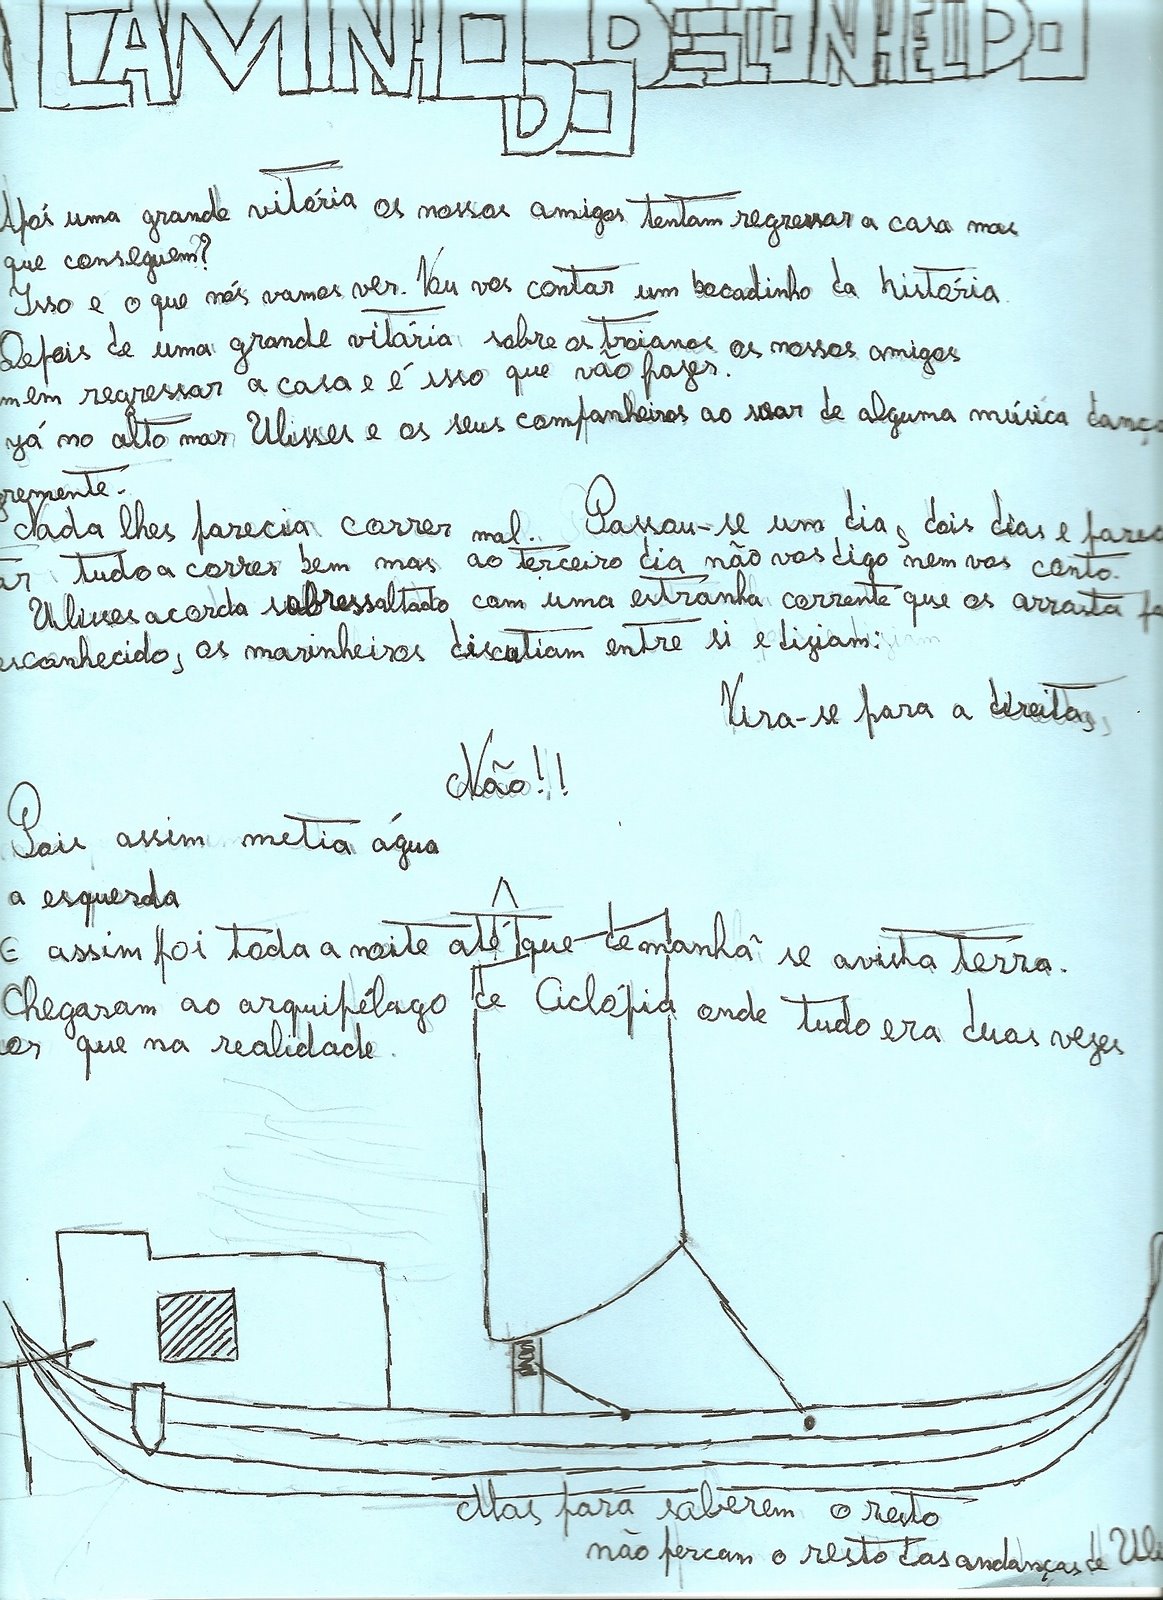 A CAMINHO DO DESCONHECIDO
Após uma grande vitória os nossos amigos tentam regressar a casa mas
que conseguem?
Isso e o que nós vamos ver. Vou vos contar um bocadinho da história
Depois de uma grande vitória sobre os troianos os nossos amigos
mem regressar a casa e é isso que vão fazer.
yá no alto mar Ulisses e os seus companheiros ao soar de alguma música danç
gremente.
Nada lhes parecia correr mal. Passou-se um dia, dois dias e parec
ar tudo a correr bem mas ao terceiro dia não vos digo nem vos conto.
Ulisses acorda sobressaltado com uma estranha corrente que os arrasta pa
esconhecido, os marinheiros discutiam entre si e diziam:
Vira-se para a direita,
Não!!
Pois assim metia água
a esquerda
E assim foi toda a noite até que de manhã se avista terra.
Chegaram ao arquipélago de Ciclópia onde tudo era duas vezes
or que na realidade.
Mas para saberem o resto
não percam o resto das andanças de Uli